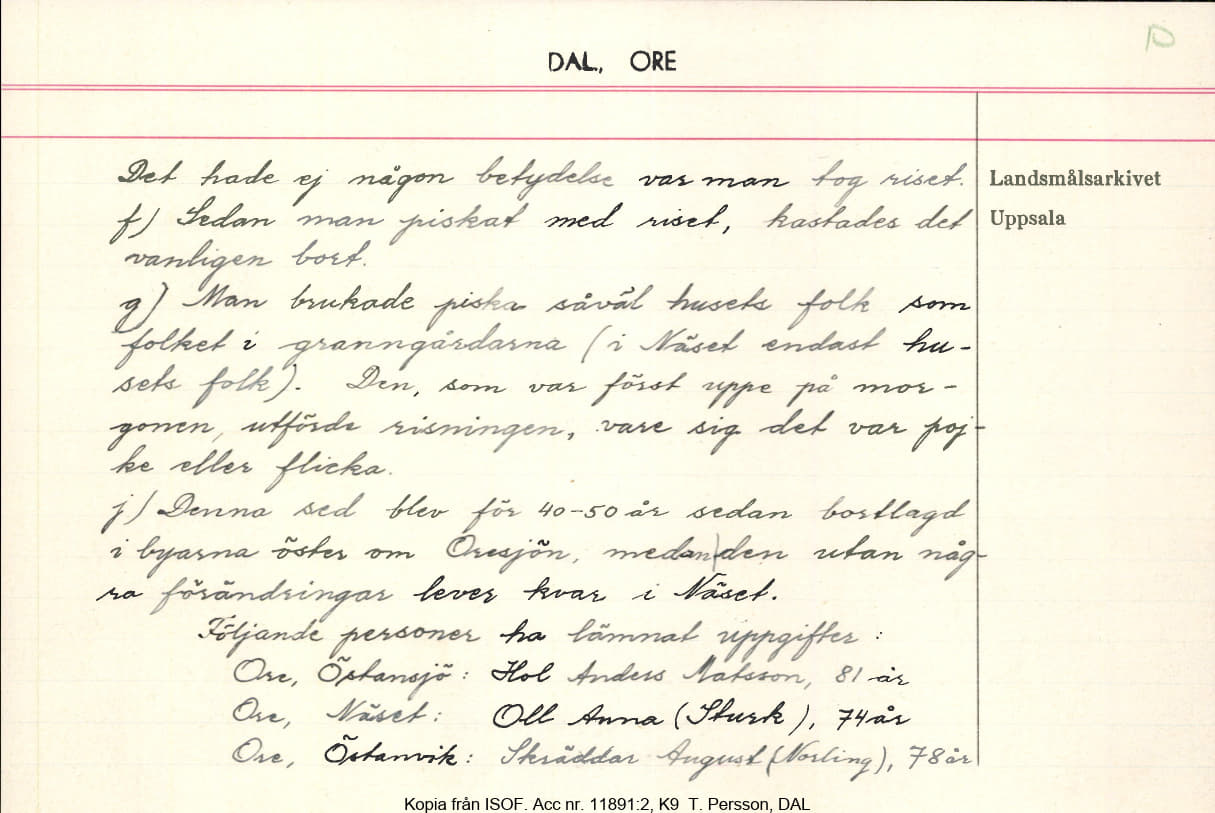 DAL., ORE
Det hade ej någon betydelse var man tog riset.
f) Sedan man piskat med riset, kastades det
vanligen bort.
g) Man brukade piska såväl husets folk som
folket i granngårdarna (i Näset endast hu-
sets folk). Den, som var först uppe på mor-
gonen, utförde risningen, vare sig det var poj-
ke eller flicka.
j) Denna sed blev för 40-50 år sedan bortlagd
i byarna öster om Oresjön, medan den utan någ-
ra förändringar lever kvar i Näset.
Följande personer ha lämnat uppgifter:
Ore, Östansjö: Hol Anders Matsson, 81 år
Ore, Näset: Oll Anna (Sturk), 74 år
Ore, Östanvik: Skräddar August (Norling), 78 år
Landsmålsarkivet
Uppsala
Kopia från ISOF. Acc nr. 11891:2, K9 T. Persson, DAL